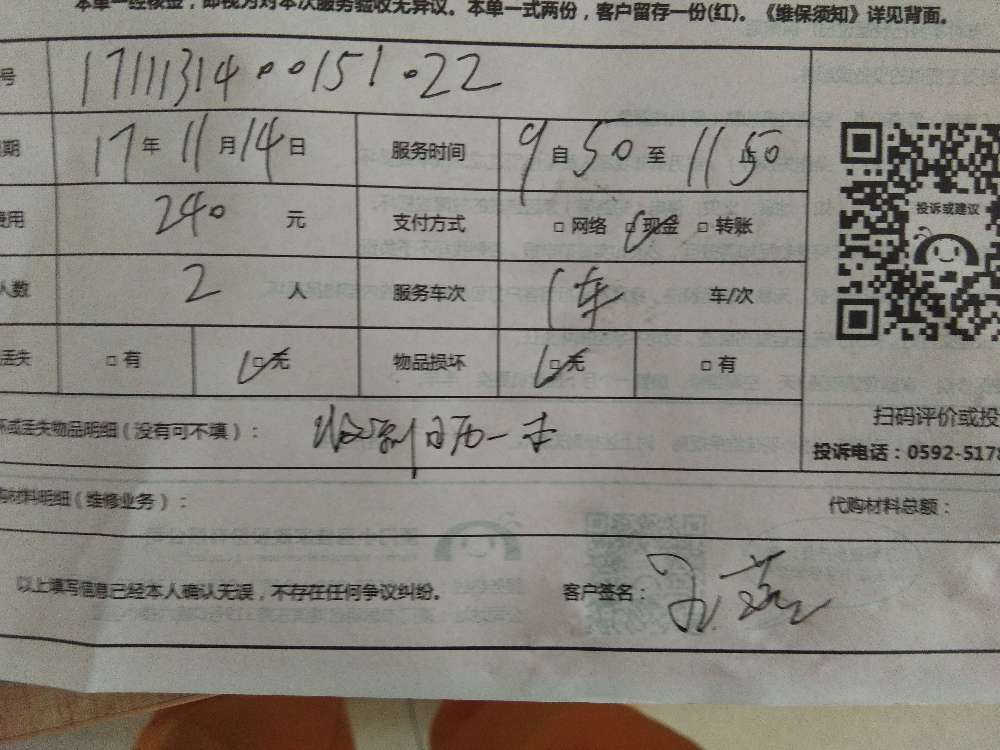 本单一经核签，即视为对本次服务验收无异议。本单一式两份，客户留存一份(红)。《维保须知》详见背面。
号 17111314000151022
期 17年11月14日 服务时间 9自50至11止50
费用 240元 支付方式 □网络 □现金 □转账
投诉或建议
人数 2人 服务车次 1车 车/次
丢失 □有 □无 物品损坏 □无 □有
扫码评价或投
坏或丢失物品明细（没有可不填）： 收到日历一本
投诉电话：0592-5178
购材料明细（维修业务）： 代购材料总额：
以上填写信息已经本人确认无误，不存在任何争议纠纷。 客户签名：